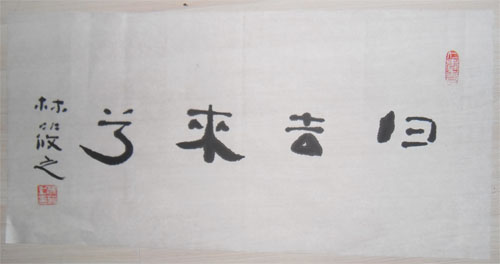 归去來兮
林筱之